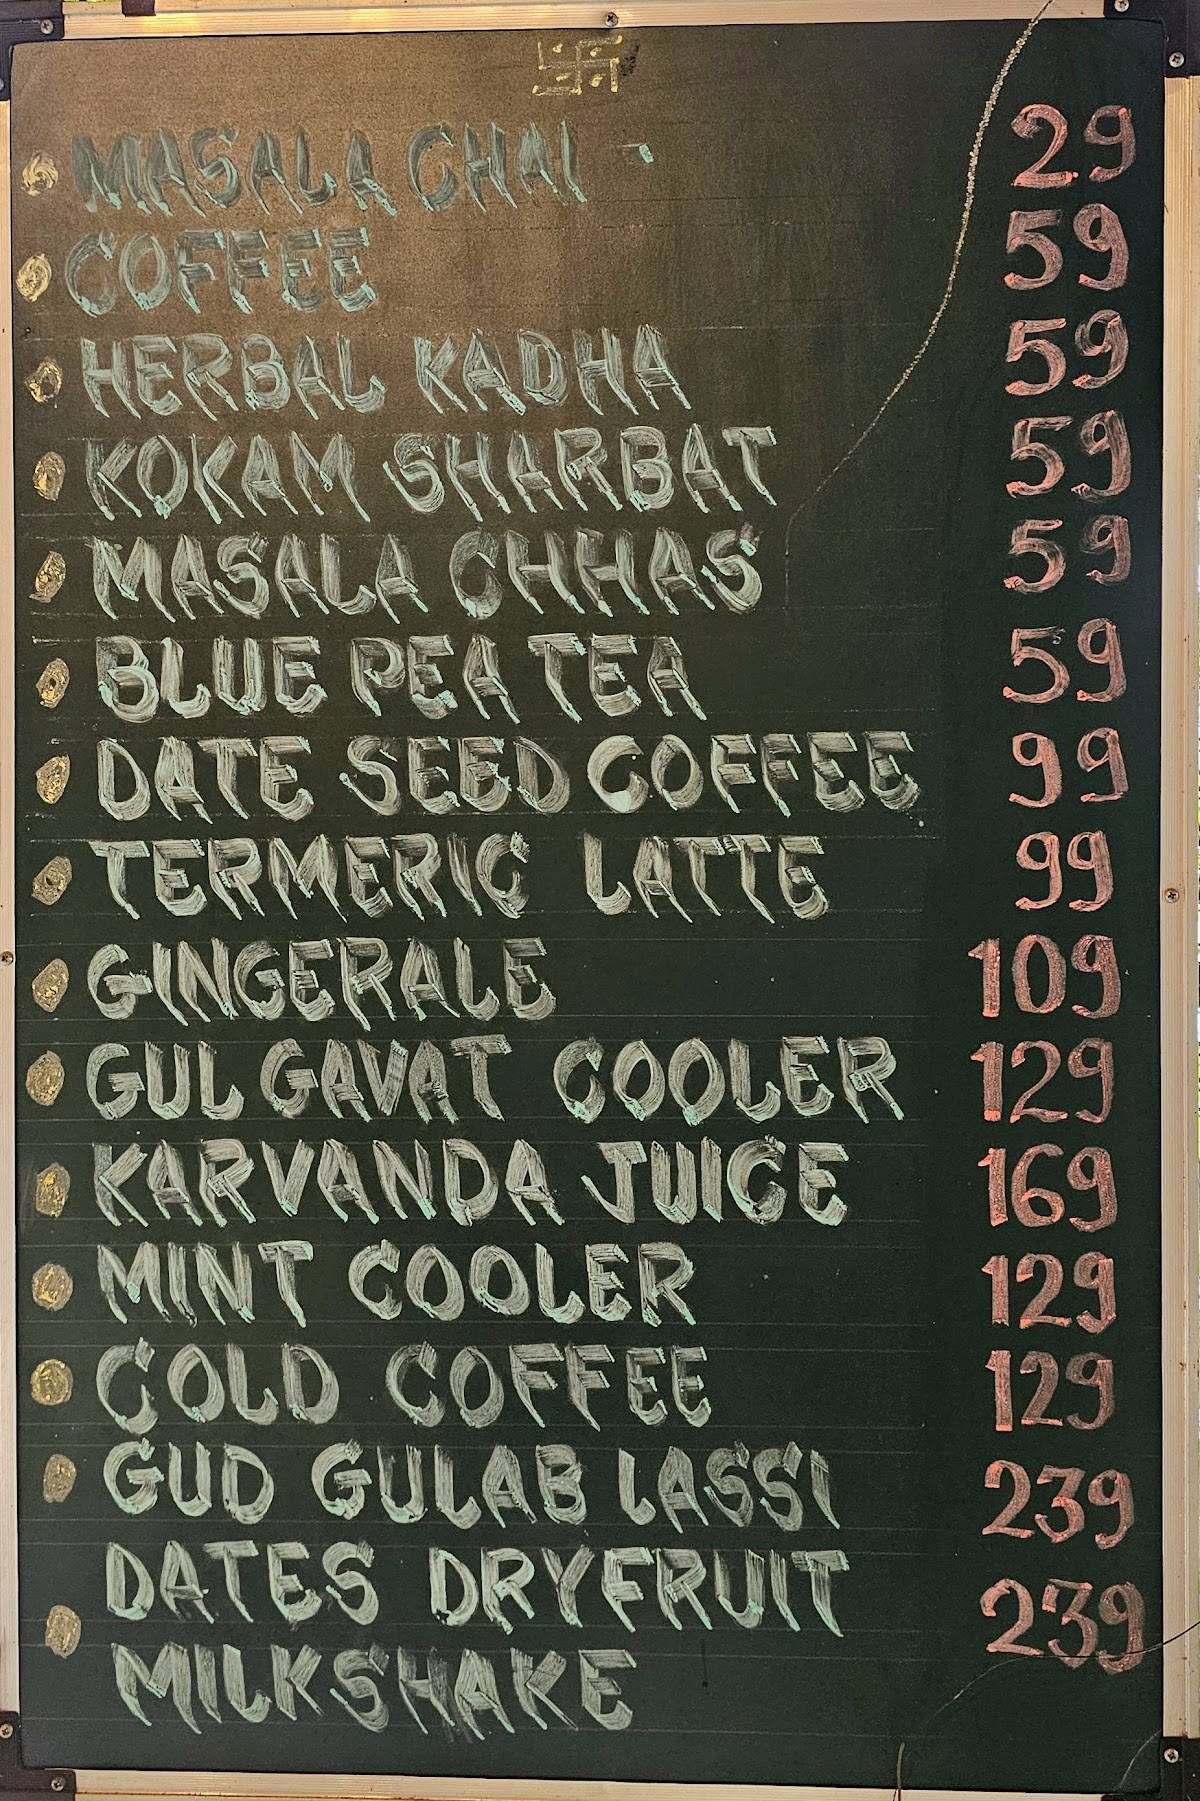 MASALA CHAI 29
COFFEE 59
HERBAL KADHA 59
KOKAM SHARBAT 59
MASALA CHHAS 59
BLUE PEA TEA 59
DATE SEED COFFEE 99
TERMERIC LATTE 99
GINGERALE 109
GUL GAVAT COOLER 129
KARVANDA JUICE 169
MINT COOLER 129
COLD COFFEE 129
GUD GULAB LASSI 239
DATES DRYFRUIT 239
MILKSHAKE